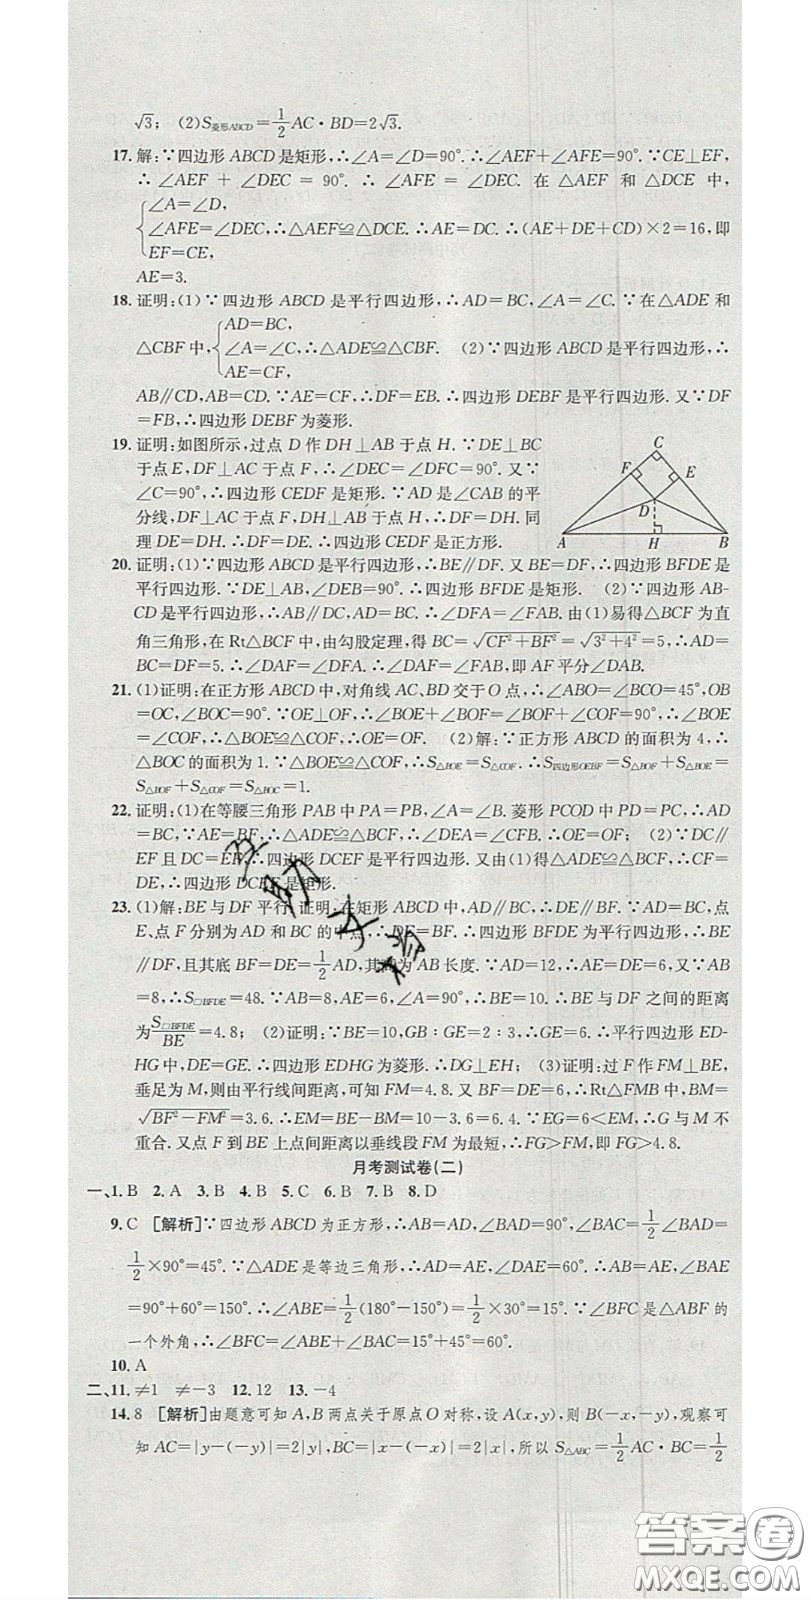 √3; (2)S菱形ABCD=1/2AC·BD=2√3.
17. 解:∵四边形 ABCD 是矩形,∴∠A=∠D=90°.∴∠AEF+∠AFE=90°.∵CE⊥EF,
∴∠AEF+∠DEC=90°.∴∠AFE=∠DEC.在△AEF 和△DCE 中,
{∠A=∠D,
∠AFE=∠DEC,∴△AEF≌△DCE.∴AE=DC.∴(AE+DE+CD)×2=16,即
EF=CE,
AE=3.
18. 证明:(1)∵四边形 ABCD 是平行四边形,∴AD=BC,∠A=∠C.∵在△ADE 和
AD=BC,
△CBF 中,{∠A=∠C,∴△ADE≌△CBF. (2)∵四边形 ABCD 是平行四边形,∴
AE=CF,
AB∥CD,AB=CD.∵AE=CF,∴DF=EB.∴四边形 DEBF 是平行四边形.又∵DF
=FB,∴四边形 DEBF 为菱形.
19. 证明:如图所示,过点 D 作 DH⊥AB 于点 H.∵DE⊥BC
于点 E,DF⊥AC 于点 F,∴∠DEC=∠DFC=90°.又∵
∠C=90°,∴四边形 CEDF 是矩形.∵AD 是∠CAB 的平
分线,DF⊥AC 于点 F,DH⊥AB 于点 H,∴DF=DH.同
理 DE=DH.∴DF=DE.∴四边形 CEDF 是正方形.
C
F
E
D
A
H
B
20. 证明:(1)∵四边形 ABCD 是平行四边形,∴BE∥DF.又 BE=DF,∴四边形 BFDE 是
平行四边形.∵DE⊥AB,∠DEB=90°.∴四边形 BFDE 是矩形. (2)∵四边形 AB-
CD 是平行四边形,∴AB∥DC,AD=BC.∴∠DFA=∠FAB.由(1)易得△BCF 为直
角三角形,在 Rt△BCF 中,由勾股定理,得 BC=√(CF²+BF²)=√(3²+4²)=5,∴AD=
BC=DF=5.∴∠DAF=∠DFA.∴∠DAF=∠FAB,即 AF 平分∠DAB.
21. (1)证明:在正方形 ABCD 中,对角线 AC、BD 交于 O 点,∴∠ABO=∠BCO=45°,OB
=OC,∠BOC=90°.∵OE⊥OF,∴∠BOE+∠BOF=∠BOF+∠COF=90°.∴∠BOE
=∠COF,∴△BOE≌△COF.∴OE=OF. (2)解:∵正方形 ABCD 的面积为 4,∴
△BOC 的面积为 1.∵△BOE≌△COF,∴S△BOE=S△COF.∴S四边形OEBF=S△BOF+S△BOE=
S△BOF+S△COF=S△BOC=1.
22. 证明:(1)在等腰三角形 PAB 中 PA=PB,∠A=∠B.菱形 PCOD 中 PD=PC,∴AD
=BC,∵AE=BF,∴△ADE≌△BCF,∠DEA=∠CFB.∴OE=OF; (2)∵DC∥
EF 且 DC=EF,∴四边形 DCEF 是平行四边形.又由(1)得△ADE≌△BCF,∴CF=
DE,∴四边形 DCEF 是矩形.
23. (1)解:BE 与 DF 平行.证明:在矩形 ABCD 中,∴DE∥BF.∵AD=BC,点
E、点 F 分别为 AD 和 BC 的中点,∴DE=BF.∴四边形 BFDE 为平行四边形,∴BE
∥DF,且其底 BF=DE=1/2AD,其高为 AB 长度.∵AD=12,∴AE=DE=6,又∵AB
=8,∴S▱BFDE=48.∵AB=8,AE=6,∠A=90°,∴BE=10.∴BE 与 DF 之间的距离
为S▱BFDE/BE=4.8; (2)证明:∵BE=10,GB∶GE=2∶3,∴GE=6.∴平行四边形 ED-
HG 中,DE=GE.∴四边形 EDHG 为菱形.∴DG⊥EH; (3)证明:过 F 作 FM⊥BE,
垂足为 M,则由平行线间距离,可知 FM=4.8.又∵BF=DE=6,∴Rt△FMB 中,BM=
√(BF²-FM²)=3.6.∴EM=BE-BM=10-3.6=6.4.∵EG=6<EM,∴G 与 M 不
重合.又点 F 到 BE 上点间距离以垂线段 FM 为最短,∴FG>FM,即 FG>4.8.
月考测试卷(二)
一、1. B 2. A 3. B 4. B 5. C 6. B 7. B 8. D
9. C [解析]∵四边形 ABCD 为正方形,∴AB=AD,∠BAD=90°,∠BAC=1/2∠BAD=
1/2×90°=45°.∵△ADE 是等边三角形,∴AD=AE,∠DAE=60°.∴AB=AE,∠BAE
=90°+60°=150°.∴∠ABE=1/2(180°-150°)=1/2×30°=15°.∵∠BFC 是△ABF 的
一个外角,∴∠BFC=∠ABE+∠BAC=15°+45°=60°.
10. A
二、11. ≠1 ≠-3 12. 12 13. -4
14. 8 [解析]由题意可知 A,B 两点关于原点 O 对称,设 A(x,y),则 B(-x,-y),观察可
知 AC=|y-(-y)|=2|y|,BC=|x-(-x)|=2|x|,所以 S△ABC=1/2AC·BC=1/2
答案圈
MXQE.COM